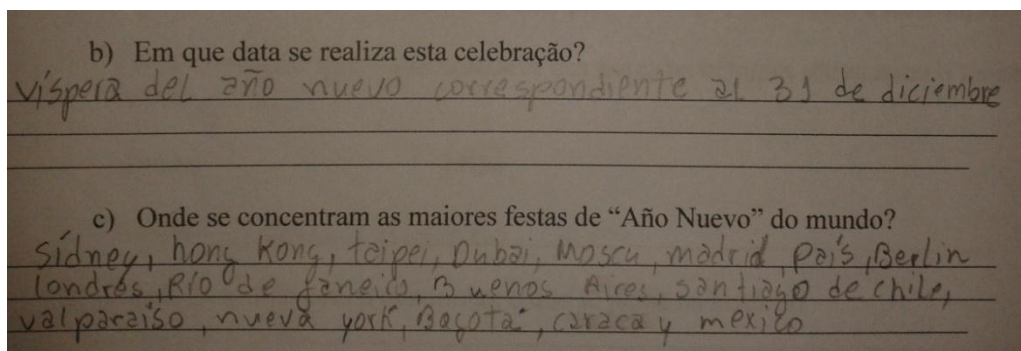 b) Em que data se realiza esta celebração?
víspera del año nuevo correspondiente al 31 de diciembre
c) Onde se concentram as maiores festas de “Año Nuevo” do mundo?
Sídney, hong Kong, taipei, Dubai, Moscu, madrid, País, Berlin
londres, Río de Janeiro, Buenos Aires, santiago de chile,
valparaiso, nueva york, Bogota, caraca y mexico